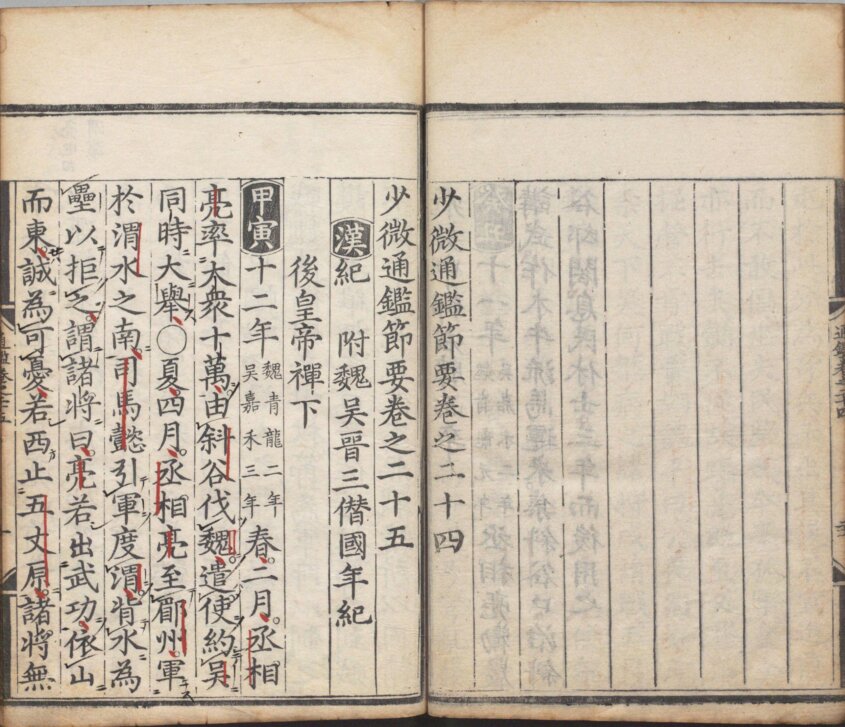 少微通鑑節要卷之二十四
少微通鑑節要卷之二十五
漢紀 附魏吳晉三僭國年紀
後皇帝禪下
甲寅十二年 魏青龍二年 吳嘉禾三年 春二月丞相
亮率大衆十萬由斜谷伐魏遣使約吳
同時大舉〇夏四月丞相亮至郿州軍
於渭水之南司馬懿引軍度渭背水為
壘以拒之謂諸將曰亮若出武功依山
而東誠為可憂若西止五丈原諸將無